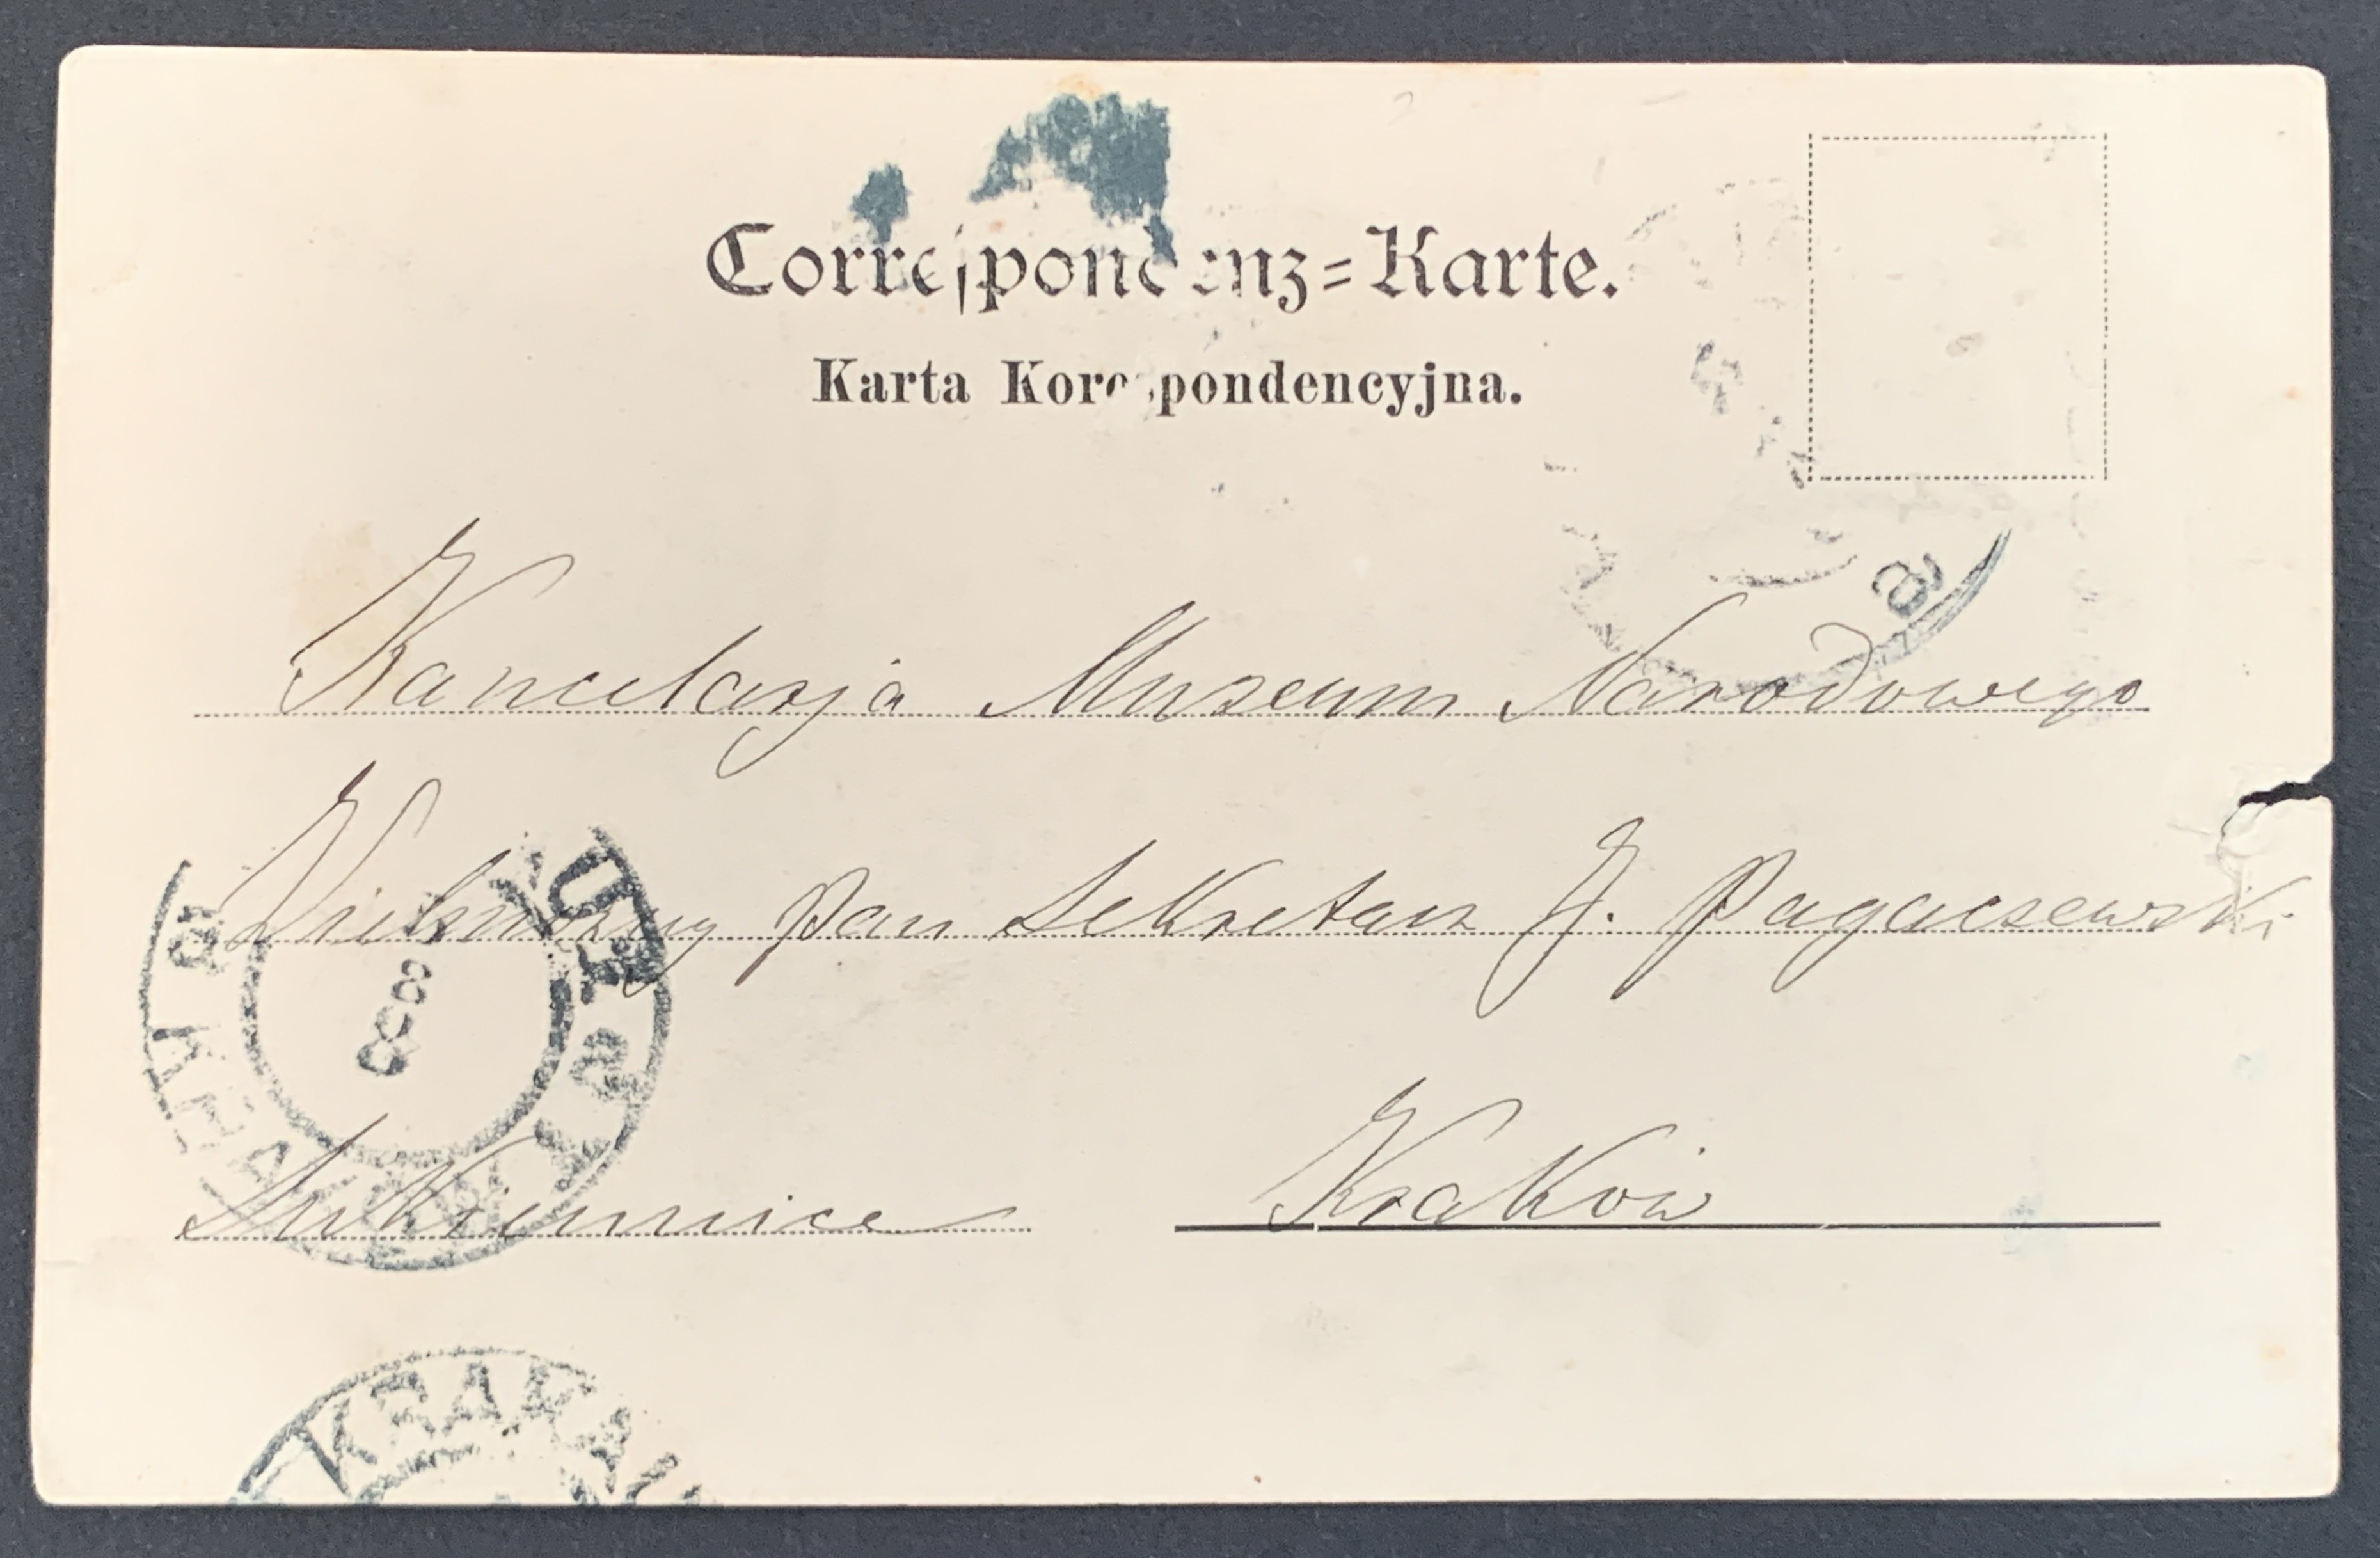 Correspondenz=Karte.
Karta Korespondencyjna.
Kancelarja Museum Narodowego
Wielmożny Pan Sekretarz J. Pagaczewski
Sukiennice Kraków
KRAKAU